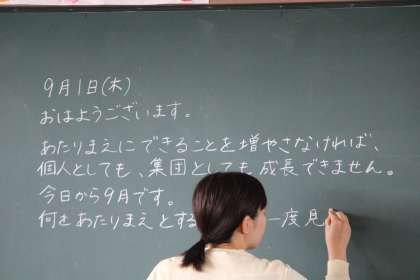 9月1日(木)
おはようございます。
あたりまえにできることを増やさなければ、
個人としても、集団としても成長できません。
今日から9月です。
何をあたりまえとする 一度見